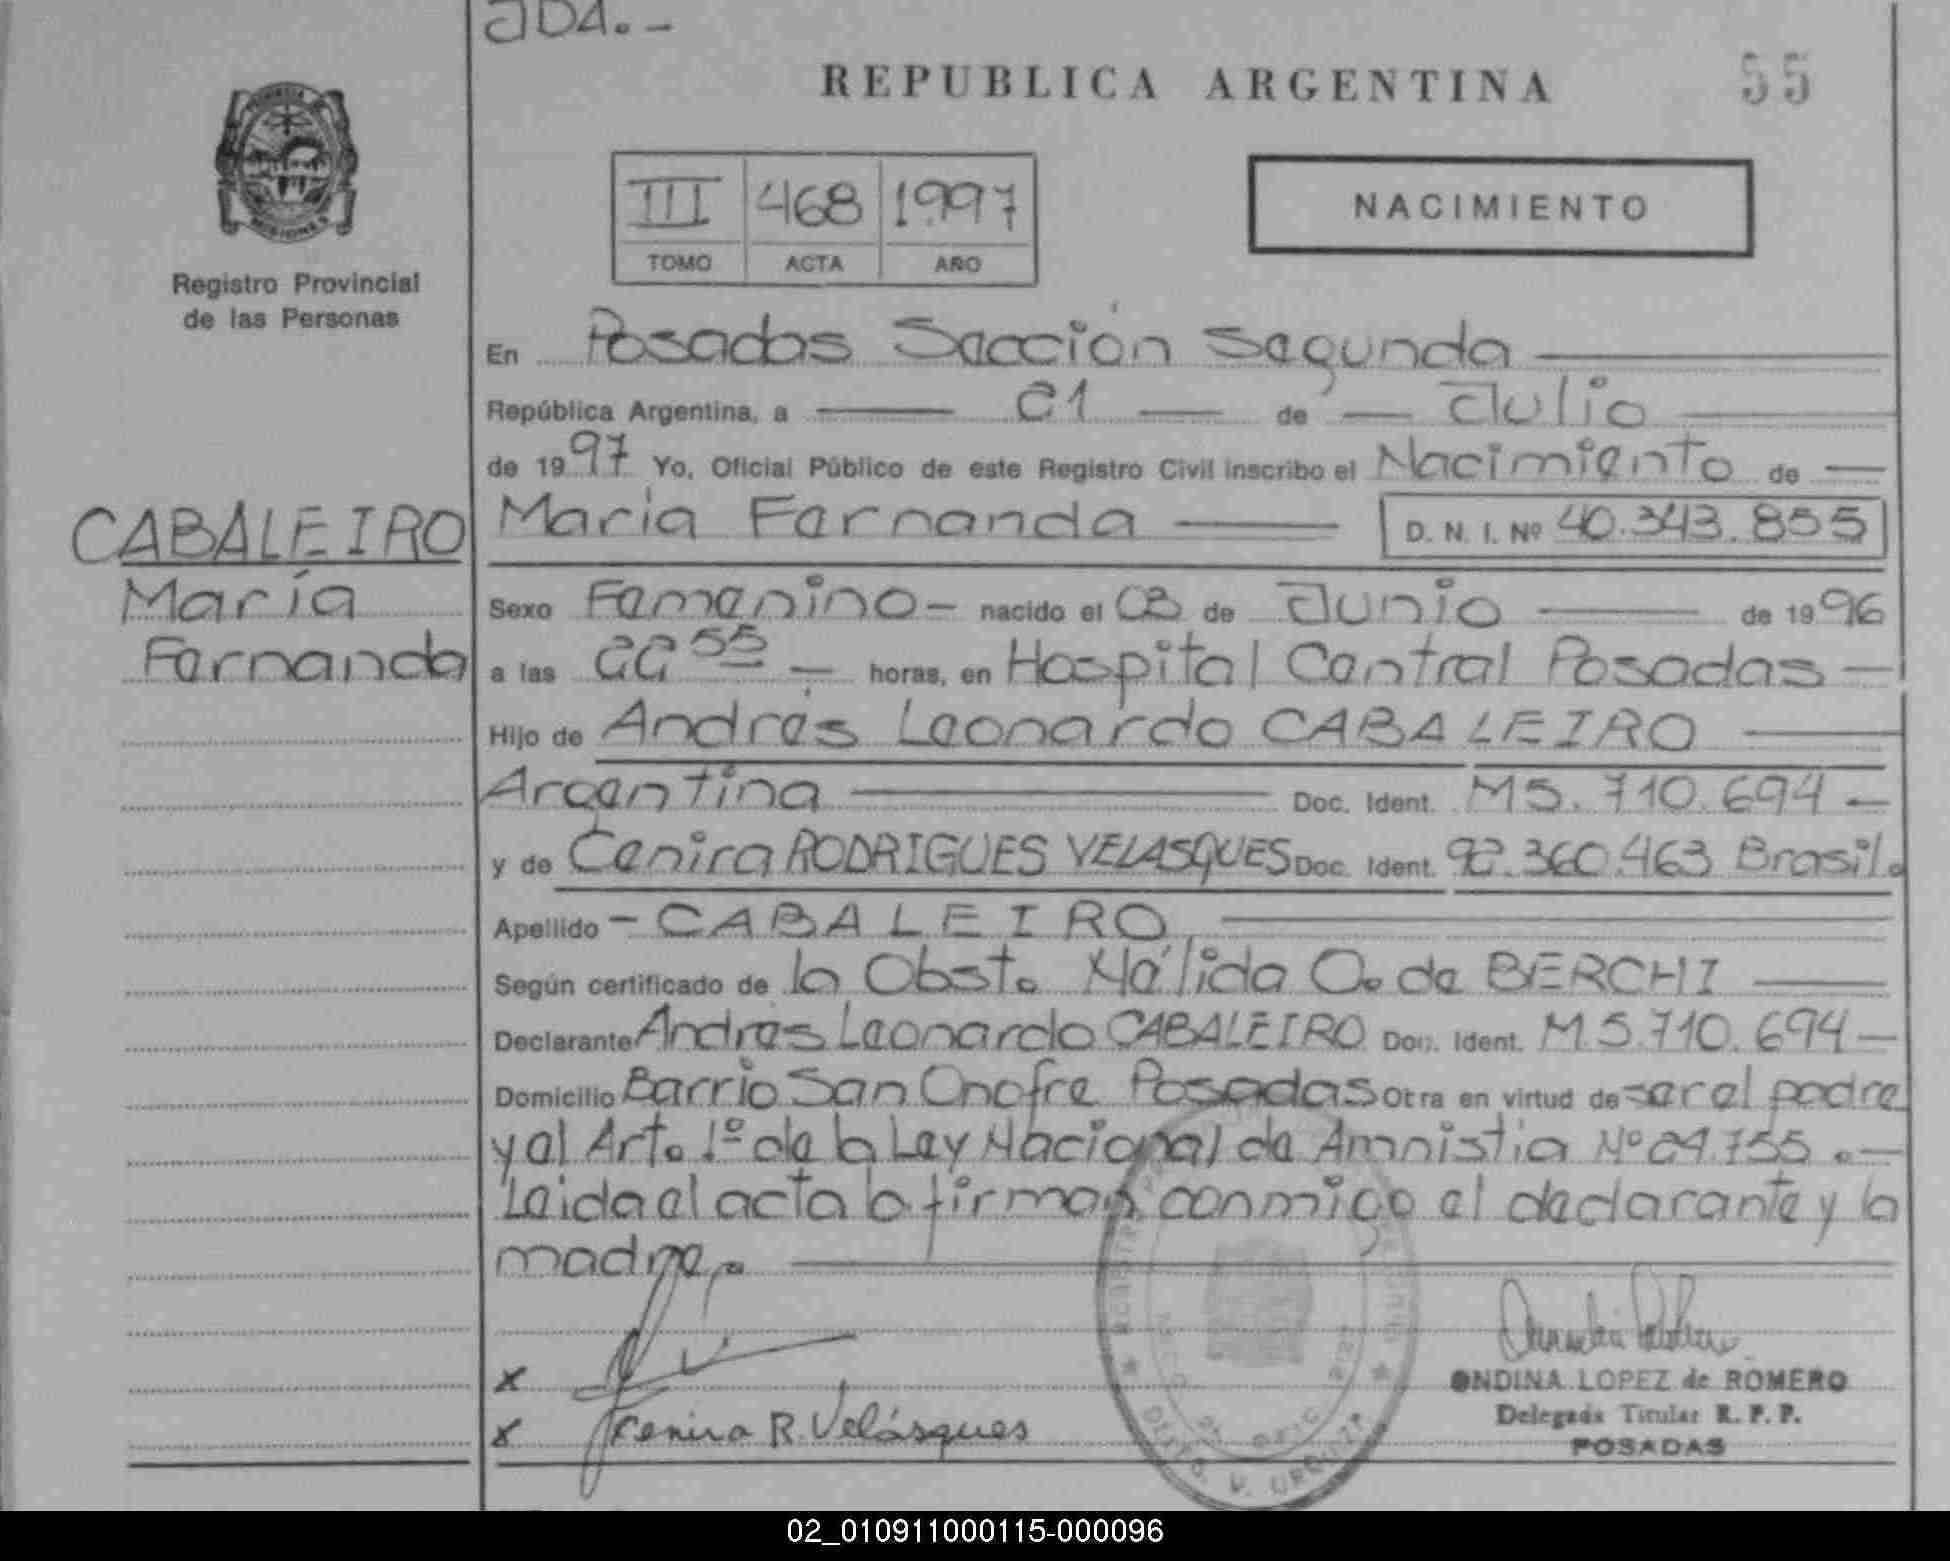 JDA.-
REPUBLICA ARGENTINA
55
III 468 1997
TOMO ACTA AÑO
NACIMIENTO
Registro Provincial
de las Personas
En Posadas Sección Segunda
República Argentina, a 01 de Julio
de 1997 Yo, Oficial Público de este Registro Civil inscribo el Nacimiento de
CABALEIRO
María
Fernanda
María Fernanda D. N. I. Nº 40.343.855
Sexo Femenino- nacido el 03 de Junio de 1996
a las 00 55 horas, en Hospital Central Posadas-
Hijo de Andrés Leonardo CABALEIRO
Argentina Doc. Ident. M5.710.694-
y de Cenira RODRIGUES VELASQUES Doc. Ident. 92.360.463 Brasil.
Apellido - CABALEIRO
Según certificado de la Obst. Nélida O. de BERCHI
Declarante Andrés Leonardo CABALEIRO Doc. Ident. M.5.710.694-
Domicilio Barrio San Onofre Posadas Otra en virtud de ser el padre
y al Art. 1º de la Ley Nacional de Amnistia Nº 24.755.-
Leida el acta la firman conmigo el declarante y la
madre.
x
x Cenira R. Velásques
ONDINA LOPEZ de ROMERO
Delegada Titular R. P. P.
POSADAS
02_010911000115-000096